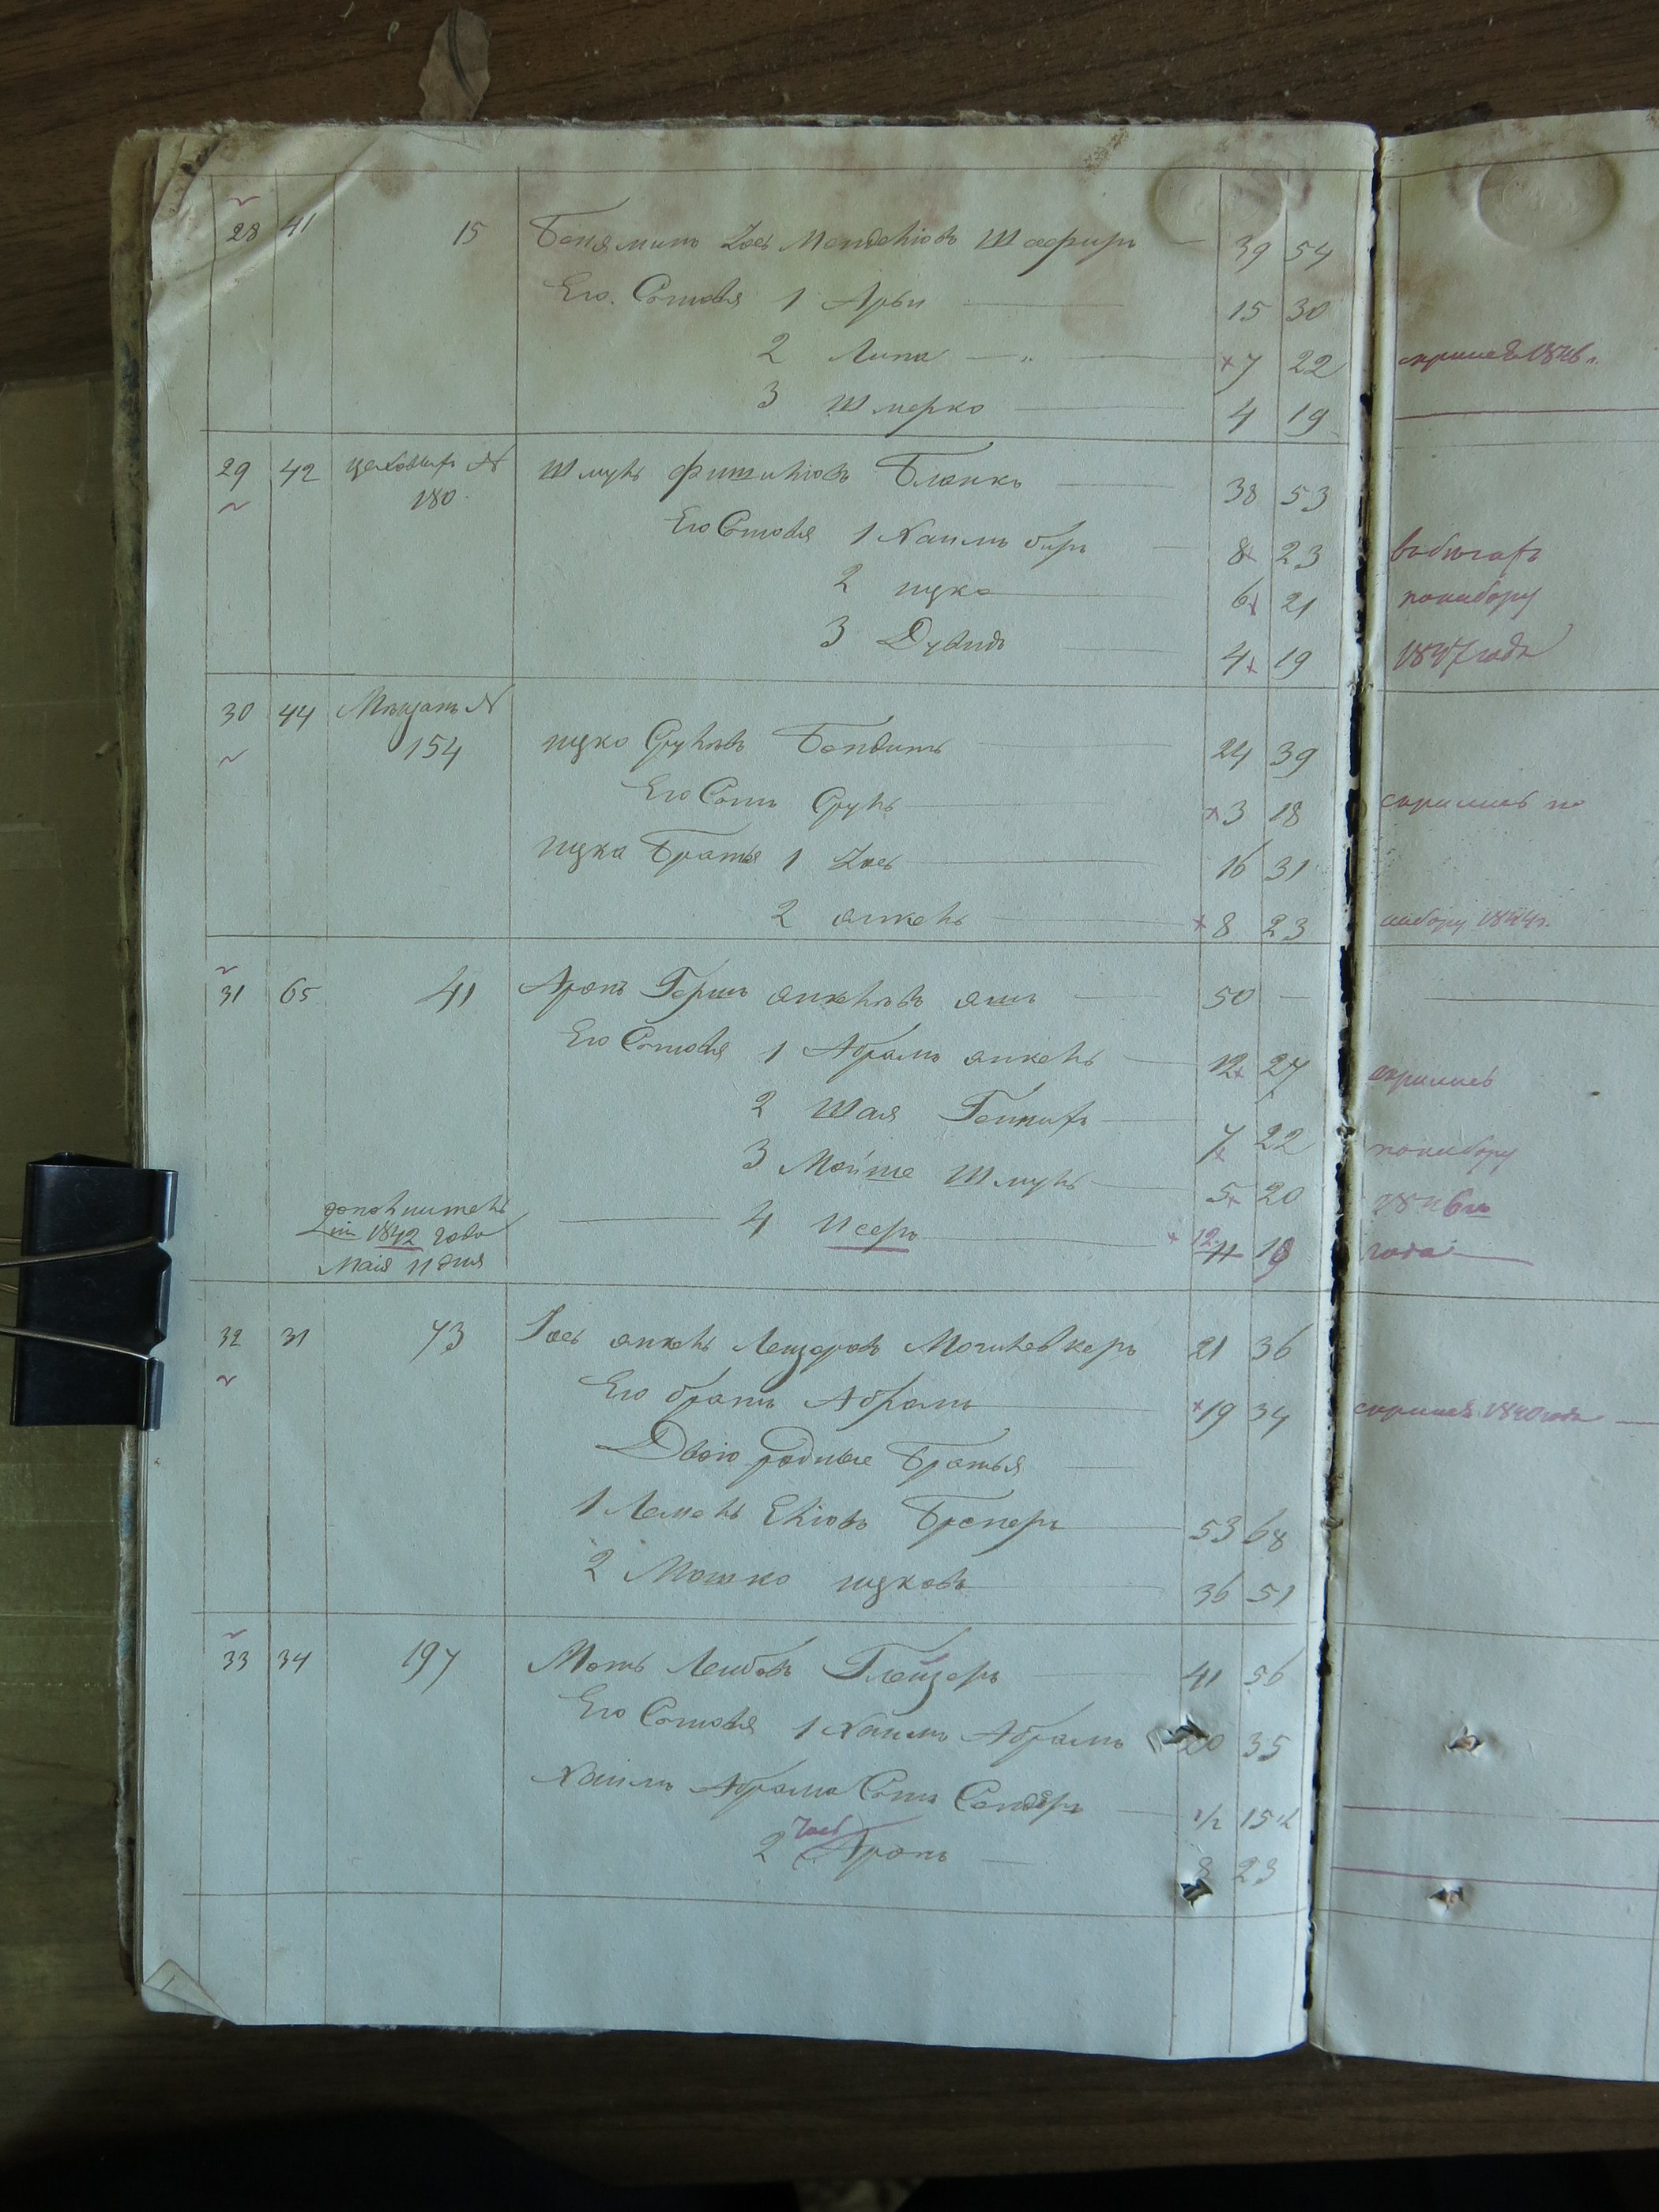 28 41 15 Бенямин Іось Менделіовъ Шафиръ — 39 54
Его Сыновья 1 Арыи — 15 30
2 Липа — " — ×7 22 1846 г.
3 Шмерко — 4 19
29 42 цеховыхъ № Шмуль Фишиліовъ Бланкъ — 38 53
180
Его Сыновья 1 Хаимъ беръ — 8× 23
2 ицко — 6× 21 понабору
3 Дувидъ — 4× 19 1847 года
30 44 Мещанъ №
154 ицко Сруліовъ Бендитъ — 24 39
Его Сынъ Сруль — ×3 18 скрылись по
ицка Братья 1 Іось — 16 31
2 янкель — ×8 23 набору 1844 г.
31 65 41 Аронъ Гершъ янкеліовъ яшъ — 50 —
Его Сыновья 1 Абрамъ янкель — 12× 27 скрылись
2 Шая — 7× 22 понабору
3 Мойше Шмуль — 5× 20 1846го
дополнитель
1842 года — 4 Исеръ — × 12 11 19 года —
Маія 11 дня
32 31 73 Іось янкель Лейзеровъ Могилевкеръ 21 36
Его братъ Абрамъ — ×19 34 1840 года —
Двоюродные Братья —
1 Лемель Еліовъ — 53 68
2 Мошко ицковъ — 36 51
33 34 197 Мотъ Лейбовъ Глейзеръ — 41 56
Его Сыновья 1 Хаимъ Абрамъ 20 35
Хаимъ Абрама Сынъ Сендеръ — 1/2 15 1/2
Іось
2 Аронъ — 8 23